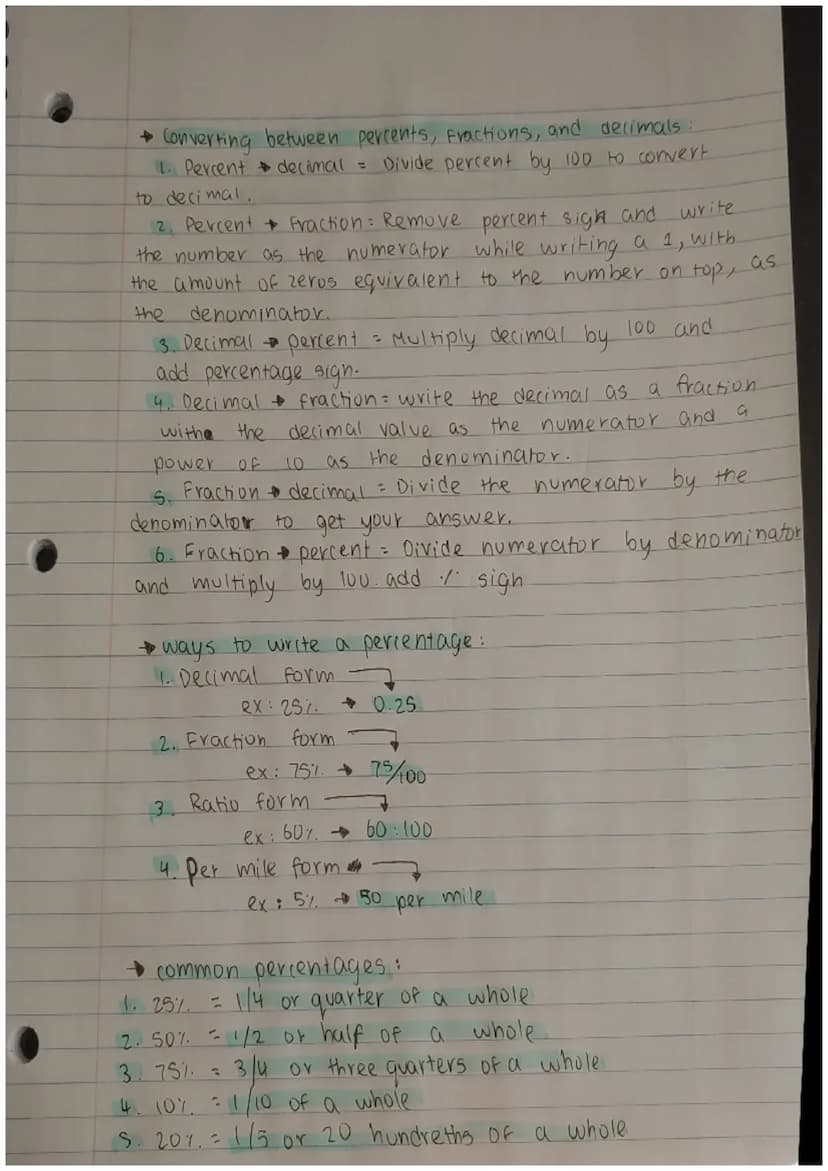 → Converting between percents, fractions, and decimals:
1. Percent → decimal = Divide percent by 100 to convert
to decimal.
2. Percent → Fraction = Remove percent sign and write
the number as the numerator while writing a 1, with
the amount of zeros equivalent to the number on top, as
the denominator.
3. Decimal → percent = Multiply decimal by 100 and
add percentage sign.
4. Decimal → fraction = write the decimal as a fraction
with the decimal value as the numerator and a
power of 10 as the denominator.
5. Fraction → decimal = Divide the numerator by the
denominator to get your answer.
6. Fraction → percent = Divide numerator by denominator
and multiply by 100. add % sign
→ ways to write a percentage:
1. Decimal form
ex: 25% → 0.25
2. Fraction form
ex: 75% → 75/100
3. Ratio form
ex: 60% → 60:100
4. Per mile form
ex: 5% → 50 per mile
→ common percentages:
1. 25% = 1/4 or quarter of a whole
2. 50% = 1/2 or half of a whole
3. 75% = 3/4 or three quarters of a whole
4. 10% = 1/10 of a whole
5. 20% = 1/5 or 20 hundreths of a whole